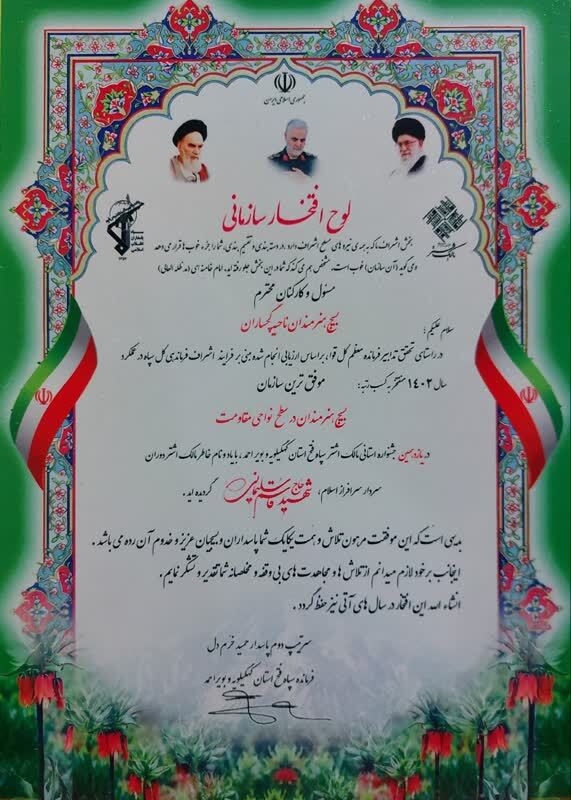 جمهوری اسلامی ایران
لوح افتخار سازمانی
بخش اشراف ما که به همه‌ی نیروهای مسلح اشراف دارد، در دسته بندی و تقسیم بندی، شما را جزء خوب ها قرار می دهد
و می گوید (آن سازمان) خوب است، مشخص هم می کند که شما در این بخش جلو رفته اید. امام خامنه ای (مد ظله العالی)
مسئول و کارکنان محترم
بسیج هنرمندان ناحیه گچساران
سلام علیکم؛
در راستای تحقق تدابیر فرمانده معظم کل قوا، بر اساس ارزیابی انجام شده مبنی بر فرایند اشراف فرماندهی کل سپاه در عملکرد
سال ۱۴۰۲ مفتخر به کسب رتبه: موفق ترین سازمان
بسیج هنرمندان در سطح نواحی مقاومت
در یازدهمین جشنواره استانی مالک اشتر سپاه فتح استان کهگیلویه و بویراحمد، با یاد و نام خاطر مالک اشتر دوران
سردار سرافراز اسلام، شهید حاج قاسم سلیمانی گردیده اید.
بدیهی است که این موفقیت مرهون تلاش و همت یکایک شما پاسداران و بسیجیان عزیز و خدوم آن رده می باشد.
اینجانب بر خود لازم میدانم از تلاش ها و مجاهدت های بی وقفه و مخلصانه شما تقدیر و تشکر نمایم.
انشاء الله این افتخار در سال های آتی نیز حفظ گردد.
سرتیپ دوم پاسدار حمید خرم دل
فرمانده سپاه فتح استان کهگیلویه و بویراحمد